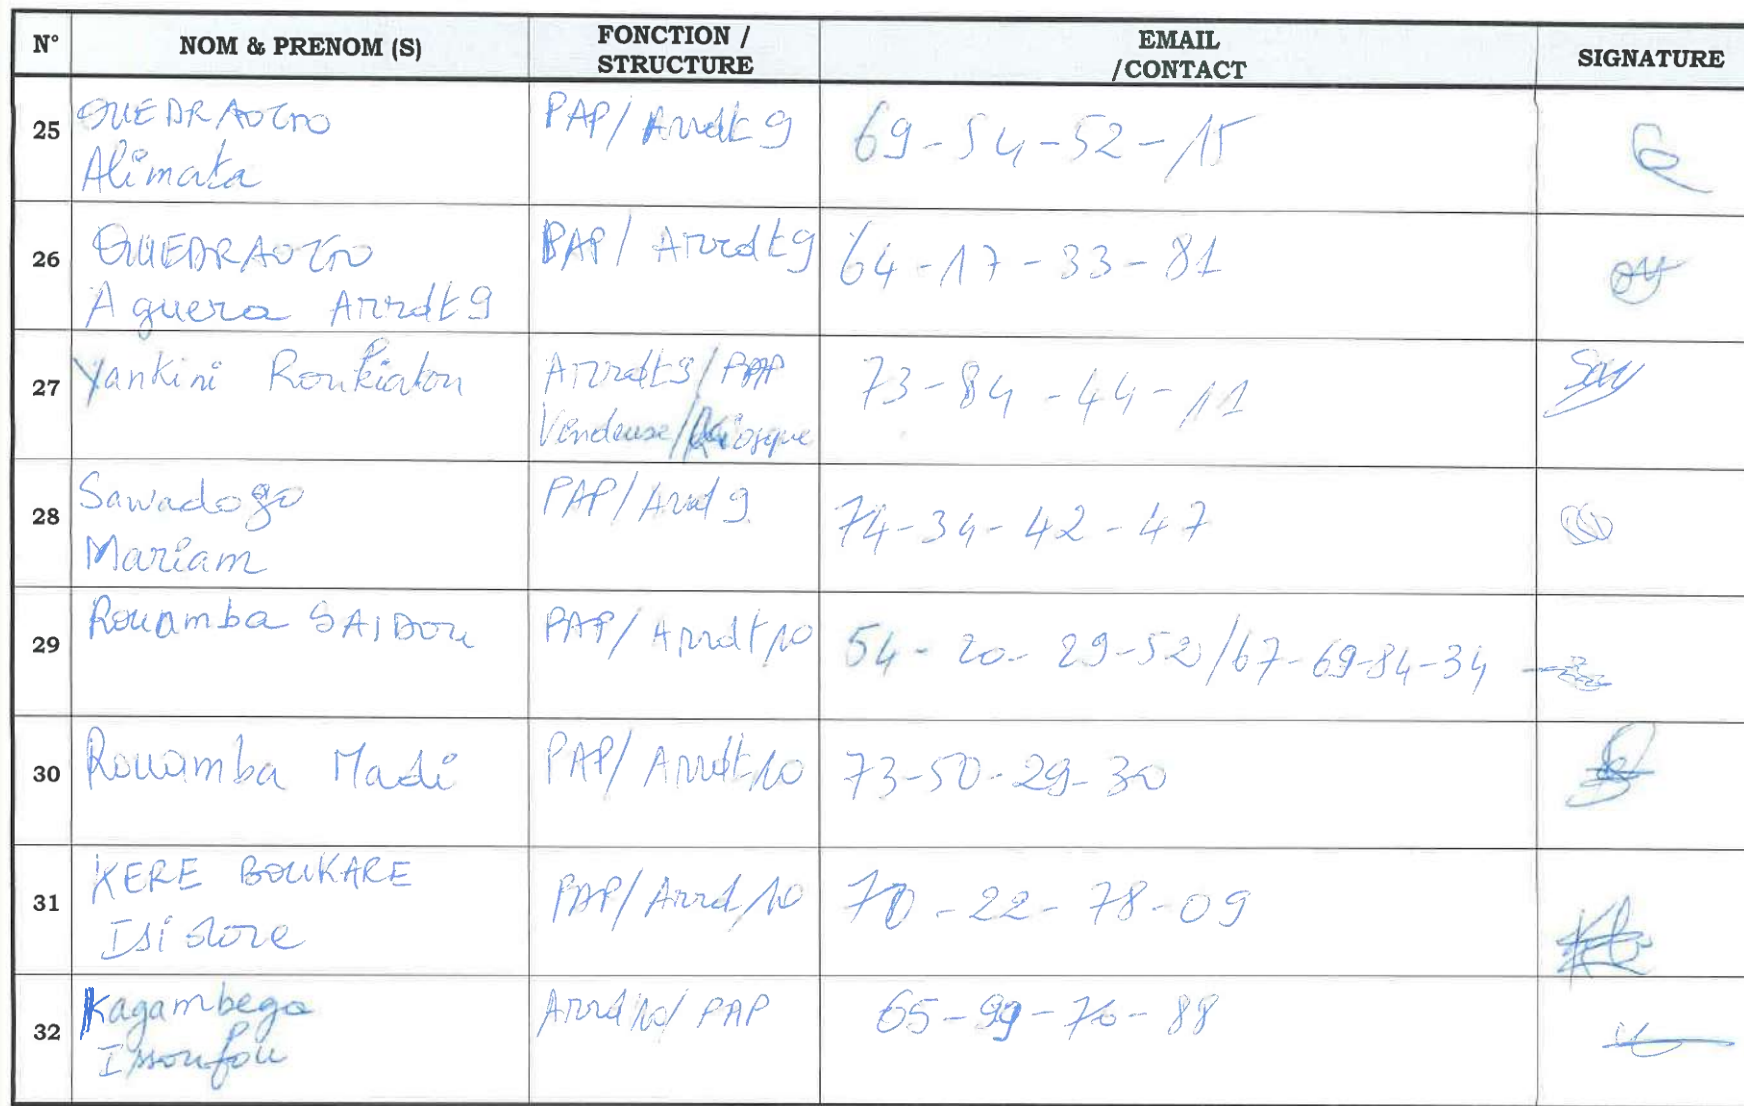 N° NOM & PRENOM (S) FONCTION / STRUCTURE EMAIL /CONTACT SIGNATURE
25 OUEDRAOGO Alimata PAP/ Arrdt 9 69-54-52-15
26 OUEDRAOGO Aguera Arrdt 9 PAP/ Arrdt 9 64-17-33-81
27 Yankini Roukiatou Arrdt 9/PAP Vendeuse/Kiosque 73-84-44-11
28 Sawadogo Mariam PAP/Arrd 9 74-34-42-47
29 Rouamba SAIDOU PAP/Arrdt 10 54-20-29-52/67-69-84-34
30 Rouamba Madi PAP/Arrdt 10 73-50-29-30
31 KERE BOUKARE Isidore PAP/Arrd/10 70-22-78-09
32 Kagambega Issoufou Arrd 10/PAP 65-99-70-88